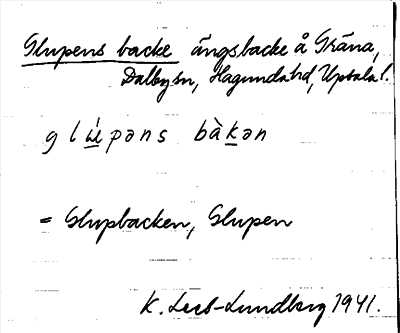 Glupens backe ängsbacke å Gräna,
Dalby sn, Hagunda hd, Upsala l.
glú̲pəns bàk̲ən
= Glupbacken, Glupen
K. Leeb-Lundberg 1941.